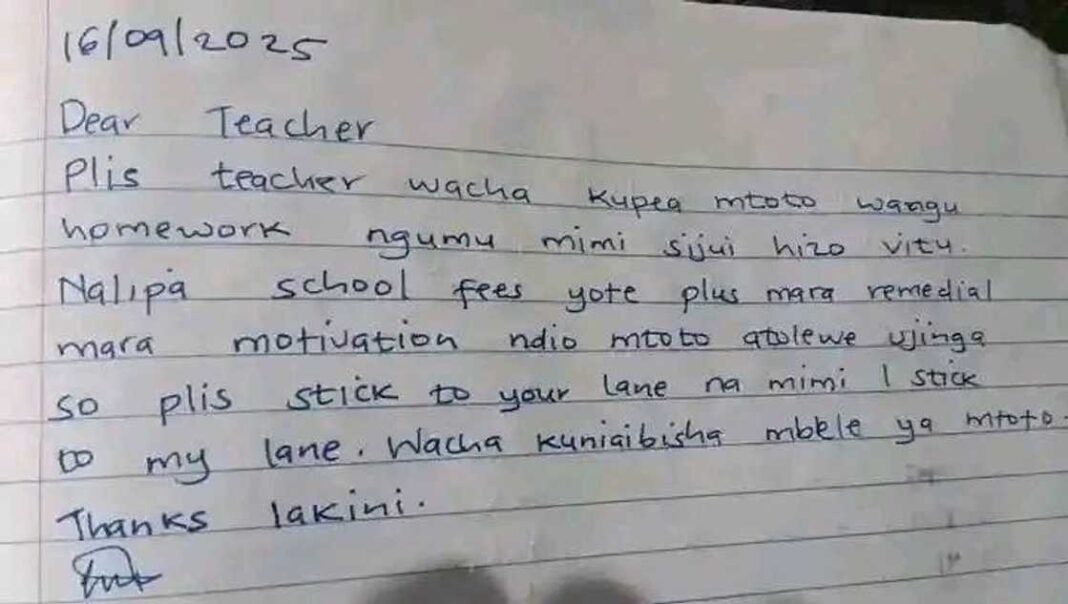 16/09/2025
Dear Teacher
Plis teacher wacha kupea mtoto wangu
homework ngumu mimi sijui hizo vitu.
Nalipa school fees yote plus mara remedial
mara motivation ndio mtoto atolewe ujinga
so plis stick to your lane na mimi I stick
to my lane. Wacha kuniaibisha mbele ya mtoto.
Thanks lakini.